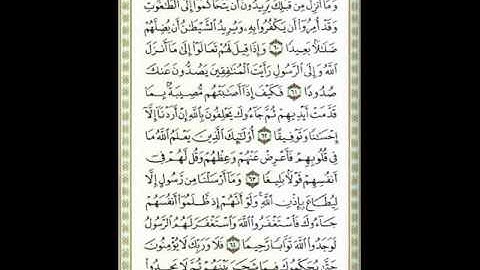 وَمَآ أُنزِلَ مِن قَبْلِكَ يُرِيدُونَ أَن يَتَحَاكَمُوٓا۟ إِلَى ٱلطَّٰغُوتِ
وَقَدْ أُمِرُوٓا۟ أَن يَكْفُرُوا۟ بِهِۦ وَيُرِيدُ ٱلشَّيْطَٰنُ أَن يُضِلَّهُمْ
ضَلَٰلًۢا بَعِيدًا ٦٠ وَإِذَا قِيلَ لَهُمْ تَعَالَوْا۟ إِلَىٰ مَآ أَنزَلَ
ٱللَّهُ وَإِلَى ٱلرَّسُولِ رَأَيْتَ ٱلْمُنَٰفِقِينَ يَصُدُّونَ عَنكَ
صُدُودًا ٦١ فَكَيْفَ إِذَآ أَصَٰبَتْهُم مُّصِيبَةٌۢ بِمَا
قَدَّمَتْ أَيْدِيهِمْ ثُمَّ جَآءُوكَ يَحْلِفُونَ بِٱللَّهِ إِنْ أَرَدْنَآ إِلَّآ
إِحْسَٰنًا وَتَوْفِيقًا ٦٢ أُو۟لَٰٓئِكَ ٱلَّذِينَ يَعْلَمُ ٱللَّهُ مَا
فِى قُلُوبِهِمْ فَأَعْرِضْ عَنْهُمْ وَعِظْهُمْ وَقُل لَّهُمْ فِىٓ
أَنفُسِهِمْ قَوْلًۢا بَلِيغًا ٦٣ وَمَآ أَرْسَلْنَا مِن رَّسُولٍ إِلَّا
لِيُطَاعَ بِإِذْنِ ٱللَّهِ وَلَوْ أَنَّهُمْ إِذ ظَّلَمُوٓا۟ أَنفُسَهُمْ
جَآءُوكَ فَٱسْتَغْفَرُوا۟ ٱللَّهَ وَٱسْتَغْفَرَ لَهُمُ ٱلرَّسُولُ
لَوَجَدُوا۟ ٱللَّهَ تَوَّابًا رَّحِيمًا ٦٤ فَلَا وَرَبِّكَ لَا يُؤْمِنُونَ
حَتَّىٰ يُحَكِّمُوكَ فِيمَا شَجَرَ بَيْنَهُمْ ثُمَّ لَا يَجِدُوا۟